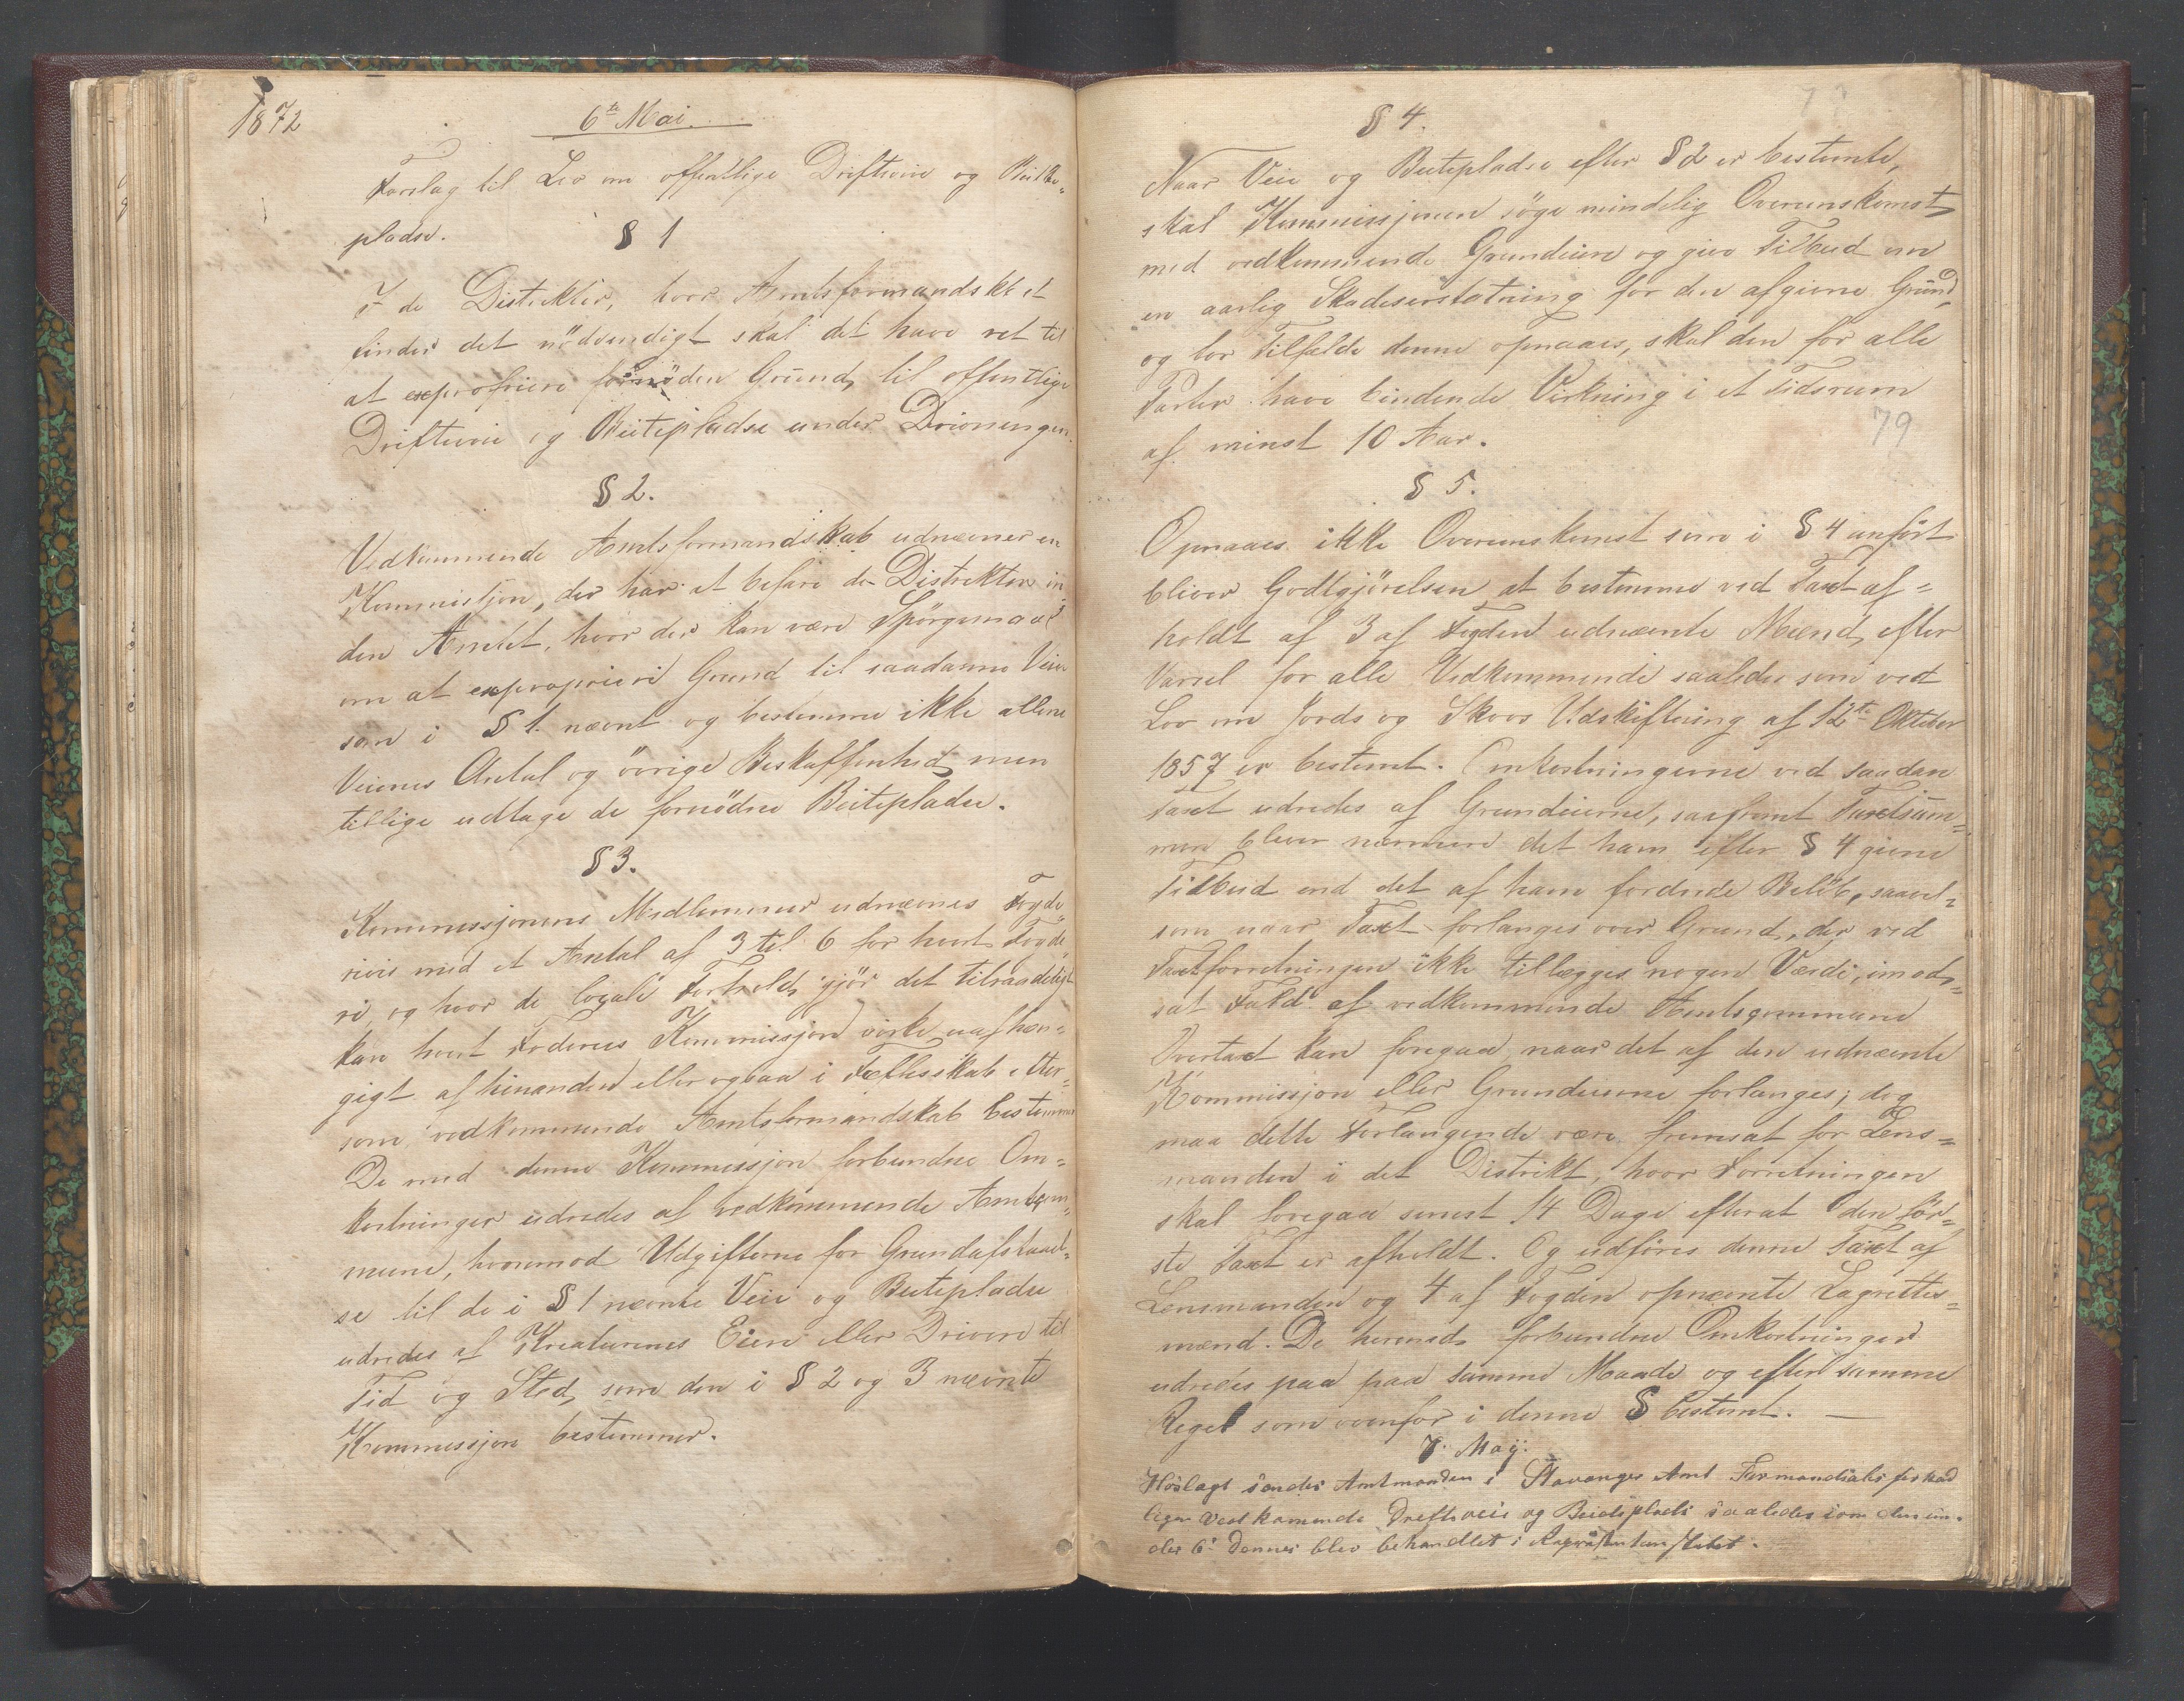 1872
6te Mai.
Forslag til Lov om offentlige Drifteveie og Beite-
pladse.
§ 1
I de Distrikter, hvor Amtsformandskbet
finder det nödvendigt skal det have ret til
at expropriere fornöden Grund til offentlige
Drifteveie og Beitepladse under Drivningen.
§ 2.
Vedkommende Amtsformandskab udnævner en
Kommissjon, der har at befare de Distrikter in-
den Amtet, hvor der kan være Spörgsmaal
om at expropriere Grund til saadanne Veie
som i § 1. nævnt og bestemme ikke allene
Veienes Antal og övrige Beskaffenhed men
tillige udtage de fornödne Beitepladse.
§ 3.
Kommissjonens Medlemmer udnævnes Fogde-
rivis med et Antal af 3 til 6 for hvert Fogde-
ri, og hvor de locale Forholde gjör det tilraadeligt
kan hvert Foderies Kommissjon virke uafhæn-
gigt af hinanden eller ogsaa i Fællesskab efter-
som vedkommende Amtsformandskab bestemmer
De med denne Kommissjon forbundne Om-
kostninger udredes af vedkommende Amtscom-
mune, hvorimod Udgifterne for Grundafstaael-
se til de i § 1 nævnte Veie og Beitepladse
udredes af Kreaturenes Eiere eller Drivere til
Tid og Sted, som den i § 2 og 3 nævnte
Kommissjon bestemmer.
§ 4.
Naar Veie og Beitepladse efter § 2 er bestemte,
skal Kommissjonen söge mindelig Overenskomst
med vedkommende Grundeiere og give Tilbud om
en aarlig Skadeserstatning for den afgivne Grund,
og for Tilfælde denne opnaaes, skal den for alle
Parter have bindende Virkning i et Tidsrum
79
af minst 10 Aar.
§ 5.
Opnaaes ikke Overenskomst som i § 4 anfört
bliver Godtgjörelsen at bestemme ved Taxt af-
holdt af 3 af Fogden udnævnte Mænd, efter
Varsel for alle Vedkommende saaledes som ved
Lov om Jords og Skovs Udskiftning af 12te Oktober
1857 er bestemt. Omkostningerne ved saadan
Taxt udredes af Grundeierne, saafremt Taxtsum-
men bliver nærmere det ham efter § 4 givne
Tilbud end det af ham fordrede Belöb, saavel-
som naar Taxt forlanges over Grund, der ved
Taxtforretningen ikke tillægges nogen Værdi, imod-
sat Fald af vedkommende Amtscommune
Overtaxt kan foregaa, naar det af den udnævnte
Kommissjon eller Grundeierne forlanges; dog
maa dette Forlangende være fremsat for Lens-
manden i det Distrikt, hvor Forretningen
skal foregaa senest 14 Dage efterat den för-
ste Taxt er afholdt. Og udföres denne Taxt af
Lensmanden og 4 af Fogden opnævnte Lagrettes-
mænd. De hermed forbundne Omkostninger
udredes paa paa samme Maade og efter samme
Regel som ovenfor i denne § bestemt. —
7. Maÿ.
Höslagt sendes Amtmanden i Stavanger Amt Formandskabs
vedkomende Drefteveie og Beitepladse saaledes som den un-
der 6te Dennes blev behandlet i Repræsentantskabet.